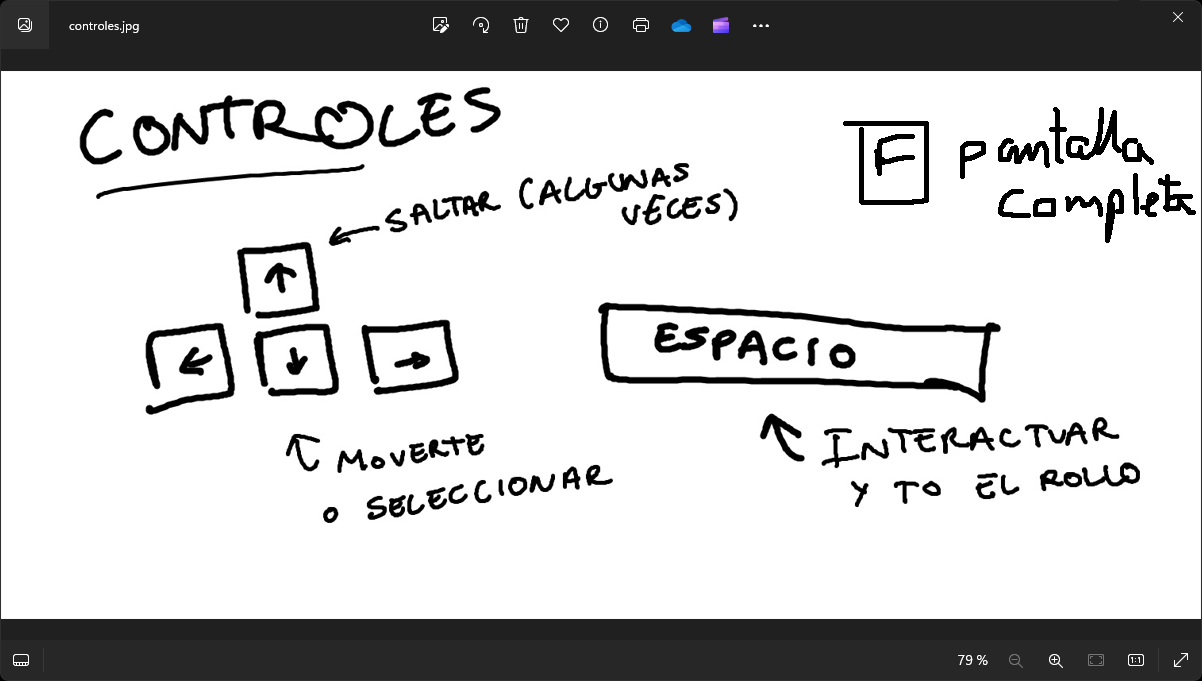 controles.jpg
CONTROLES
F pantalla
completa
SALTAR (ALGUNAS
VECES)
↑
← ↓ →
ESPACIO
MOVERTE
O SELECCIONAR
INTERACTUAR
Y TO EL ROLLO
79 %
1:1